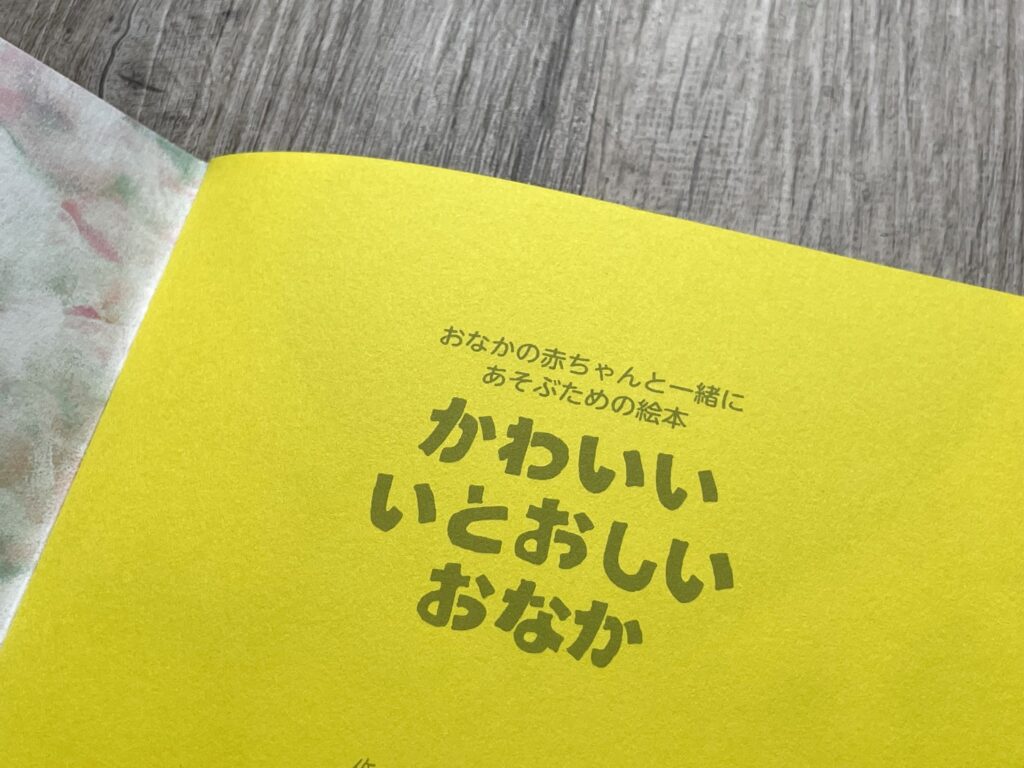 おなかの赤ちゃんと一緒に
あそぶための絵本
かわいい
いとおしい
おなか
作